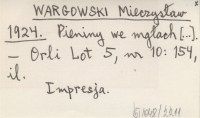 WARGOWSKI Mieczysław
1924. Pieniny we mgłach [...].
— Orli Lot 5, nr 10: 154,
il.
Impresja.